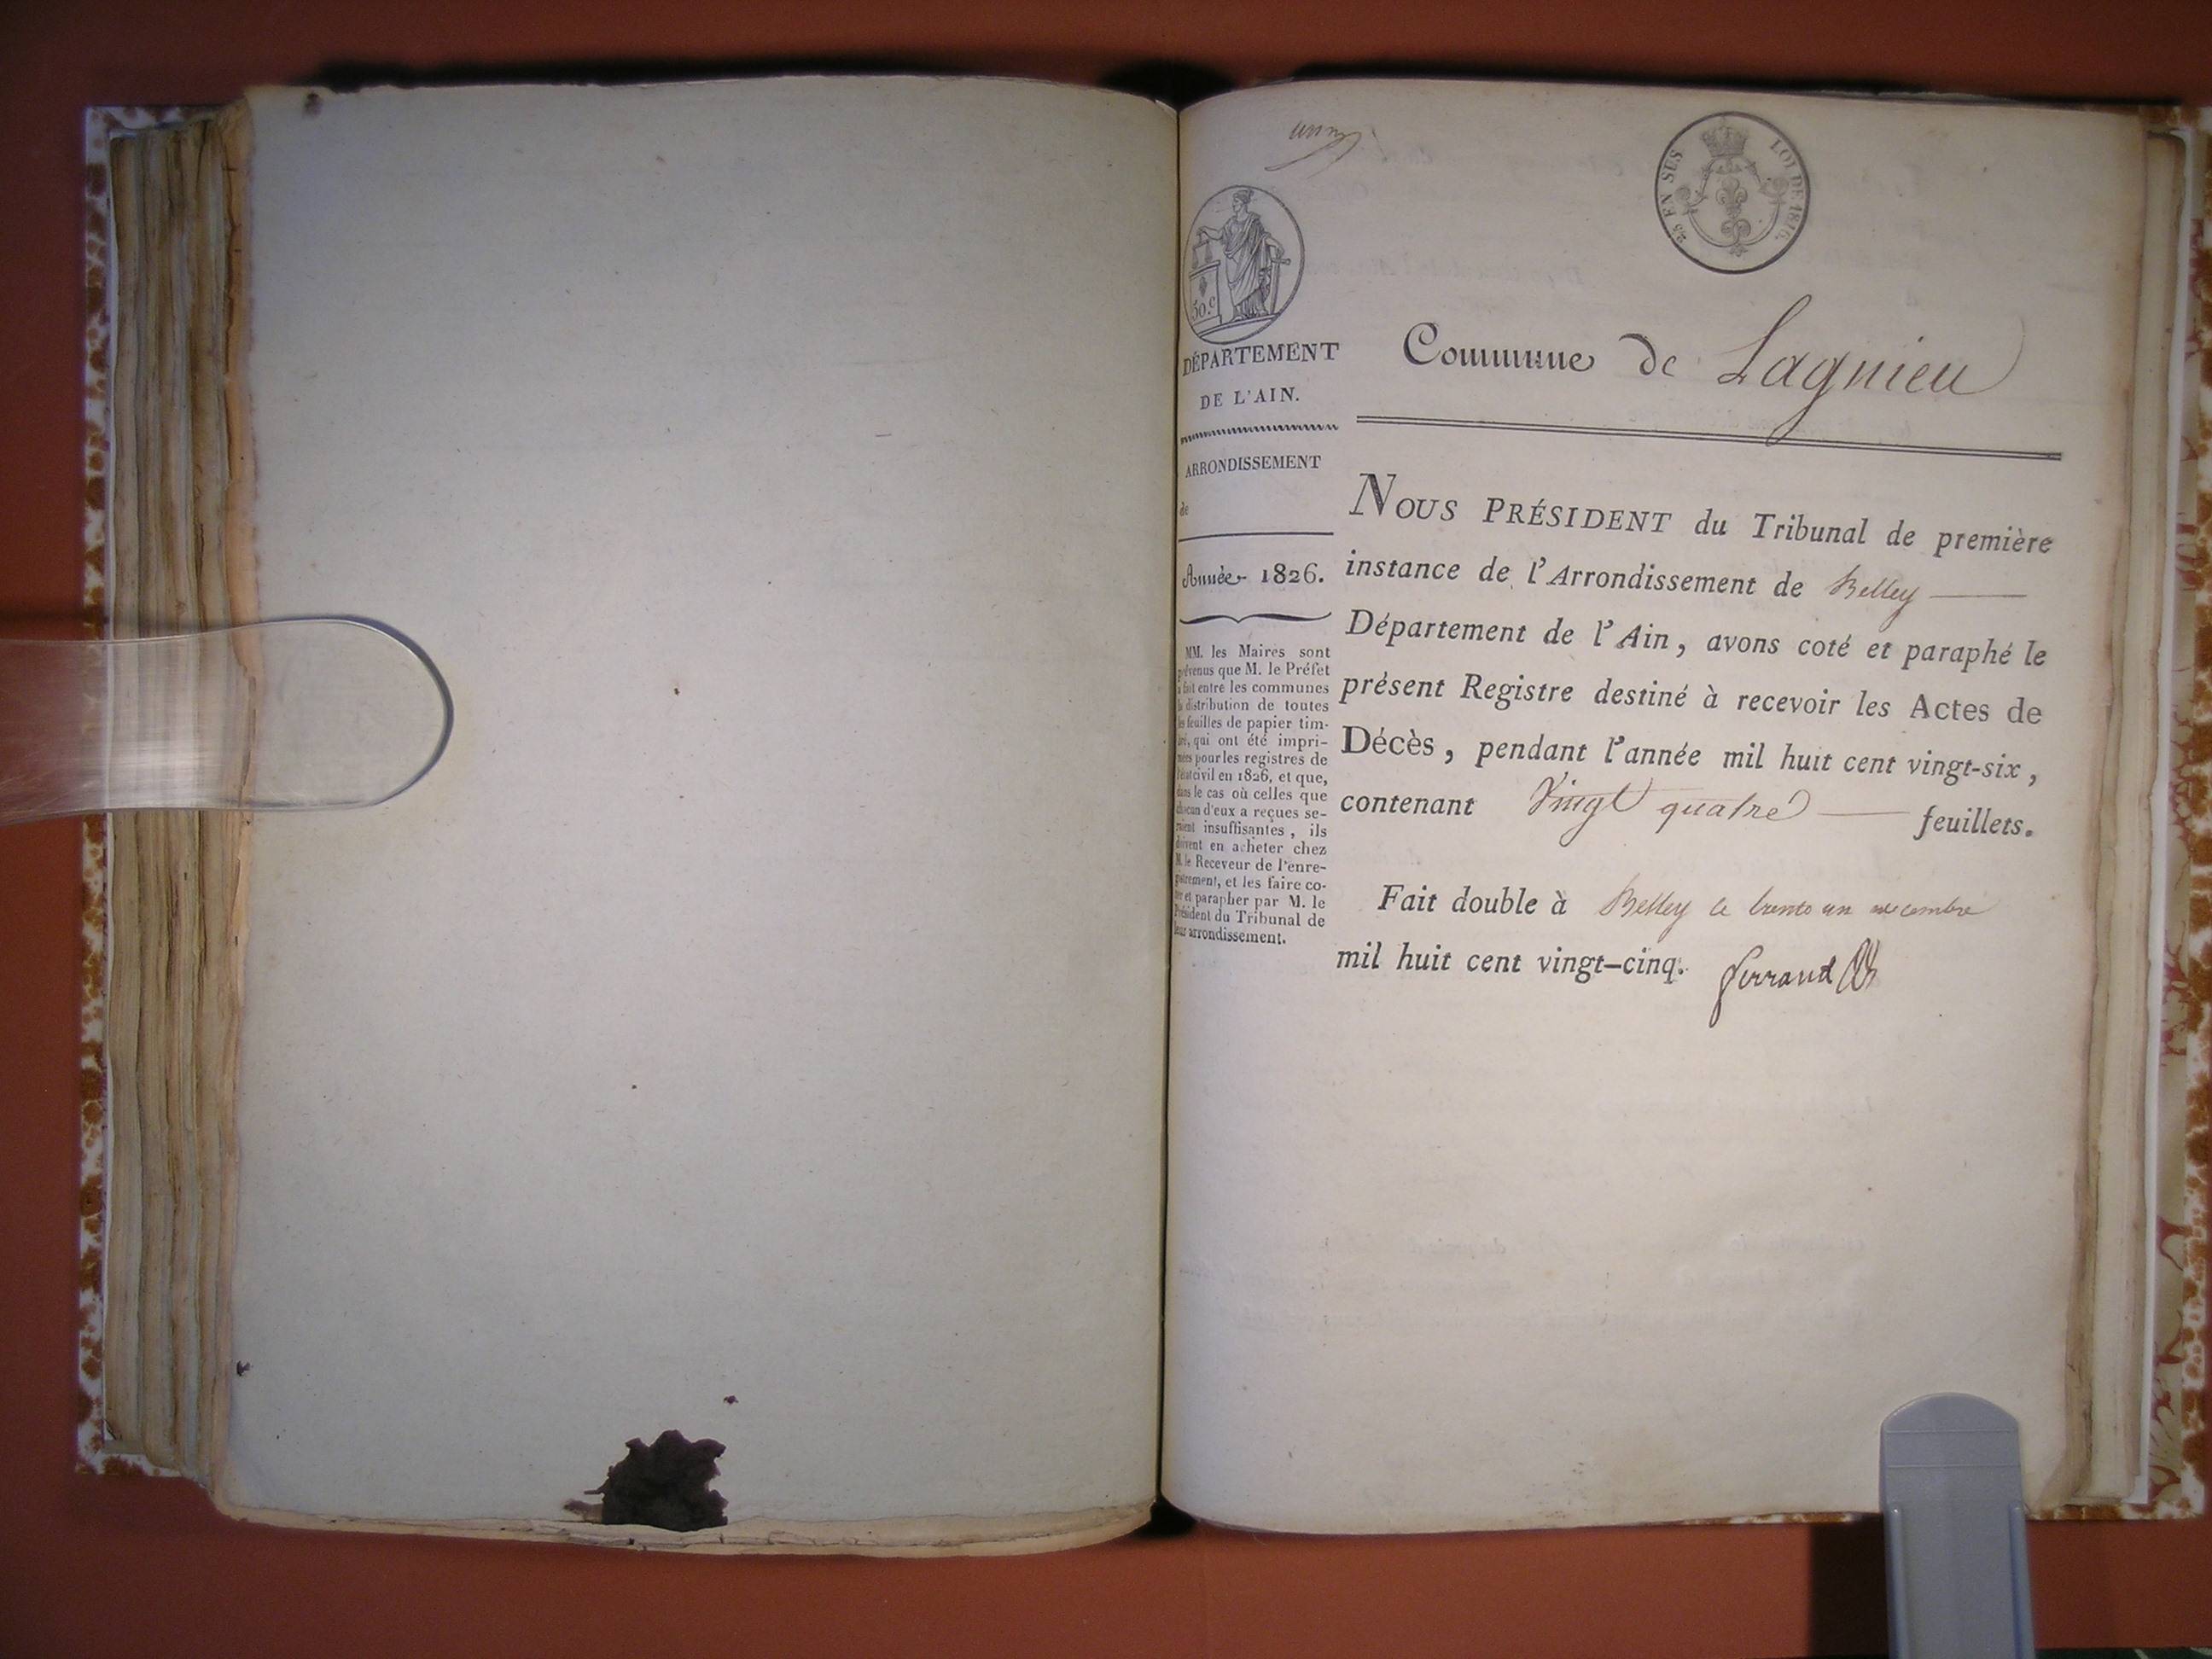 50.c
25 EN SUS
LOI DE 1816.
DÉPARTEMENT
DE L'AIN.
ARRONDISSEMENT
de
Année 1826.
MM. les Maires sont
prévenus que M. le Préfet
a fait entre les communes
la distribution de toutes
les feuilles de papier tim-
bré, qui ont été impri-
mées pour les registres de
l'état civil en 1826, et que,
dans le cas où celles que
chacun d'eux a reçues se-
raient insuffisantes, ils
doivent en acheter chez
M. le Receveur de l'enre-
gistrement, et les faire co-
ter et parapher par M. le
Président du Tribunal de
leur arrondissement.
Commune de Lagnieu
NOUS PRÉSIDENT du Tribunal de première
instance de l'Arrondissement de Belley
Département de l'Ain, avons coté et paraphé le
présent Registre destiné à recevoir les Actes de
Décès, pendant l'année mil huit cent vingt-six,
contenant Vingt quatre feuillets.
Fait double à Belley le trente un décembre
mil huit cent vingt-cinq. ferrand